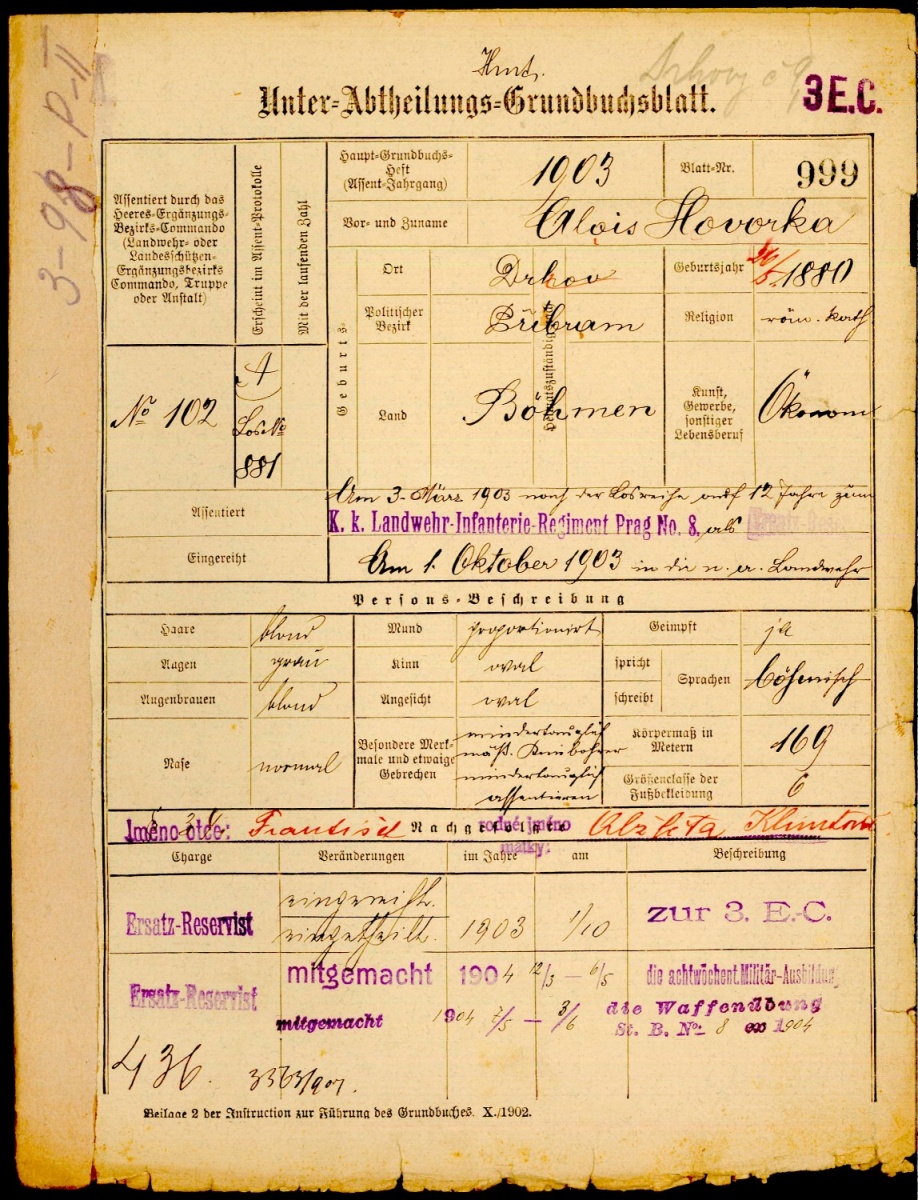 Unter-Abtheilungs-Grundbuchsblatt.
3 E.C.
3-98-P-II
Assentiert durch das
Heeres-Ergänzungs-
Bezirks-Commando
(Landwehr- oder
Landesschützen-
Ergänzungsbezirks
Commando, Truppe
oder Anstalt)
Erscheint im Assent-Protokolle
Mit der laufenden Zahl
Haupt-Grundbuchs-
Heft
(Assent-Jahrgang)
1903
Blatt-Nr.
999
Vor- und Zuname
Alois Hovorka
Geburts-
Ort
Drhov
Geburtsjahr
1880
Politischer
Bezirk
Přibram
Religion
röm. kath
Land
Böhmen
Kunst,
Gewerbe,
sonstiger
Lebensberuf
Ökonom
No 102
A
Los No
881
Assentiert
Am 3. März 1903 nach der Losreihe auf 12 Jahre zum
K. k. Landwehr-Infanterie-Regiment Prag No. 8, als
Eingereiht
Am 1. Oktober 1903 in die n. a. Landwehr
Persons-Beschreibung
Haare
blond
Mund
proportionirt
Geimpft
ja
Augen
grau
Kinn
oval
spricht
Sprachen
böhmisch
Augenbrauen
blond
Angesicht
oval
schreibt
Nase
normal
Besondere Merk-
male und etwaige
Gebrechen
mindertauglich
mäß. Kniebohrer
mindertauglich
assentieren
Körpermaß in
Metern
169
Größenclasse der
Fußbekleidung
6
Jméno otce: František
rodné jméno
matky:
Alžběta
Charge
Veränderungen
im Jahre
am
Beschreibung
Ersatz-Reservist
eingereiht.
eingetheilt.
1903
1/10
zur 3. E.-C.
Ersatz-Reservist
mitgemacht
1904
12/3 – 6/5
die achtwöchent. Militär-Ausbildung
mitgemacht
1904
7/5 – 3/6
die Waffenübung
St. B. No: 8 ex 1904
436.
Beilage 2 der Instruction zur Führung des Grundbuches. X./1902.